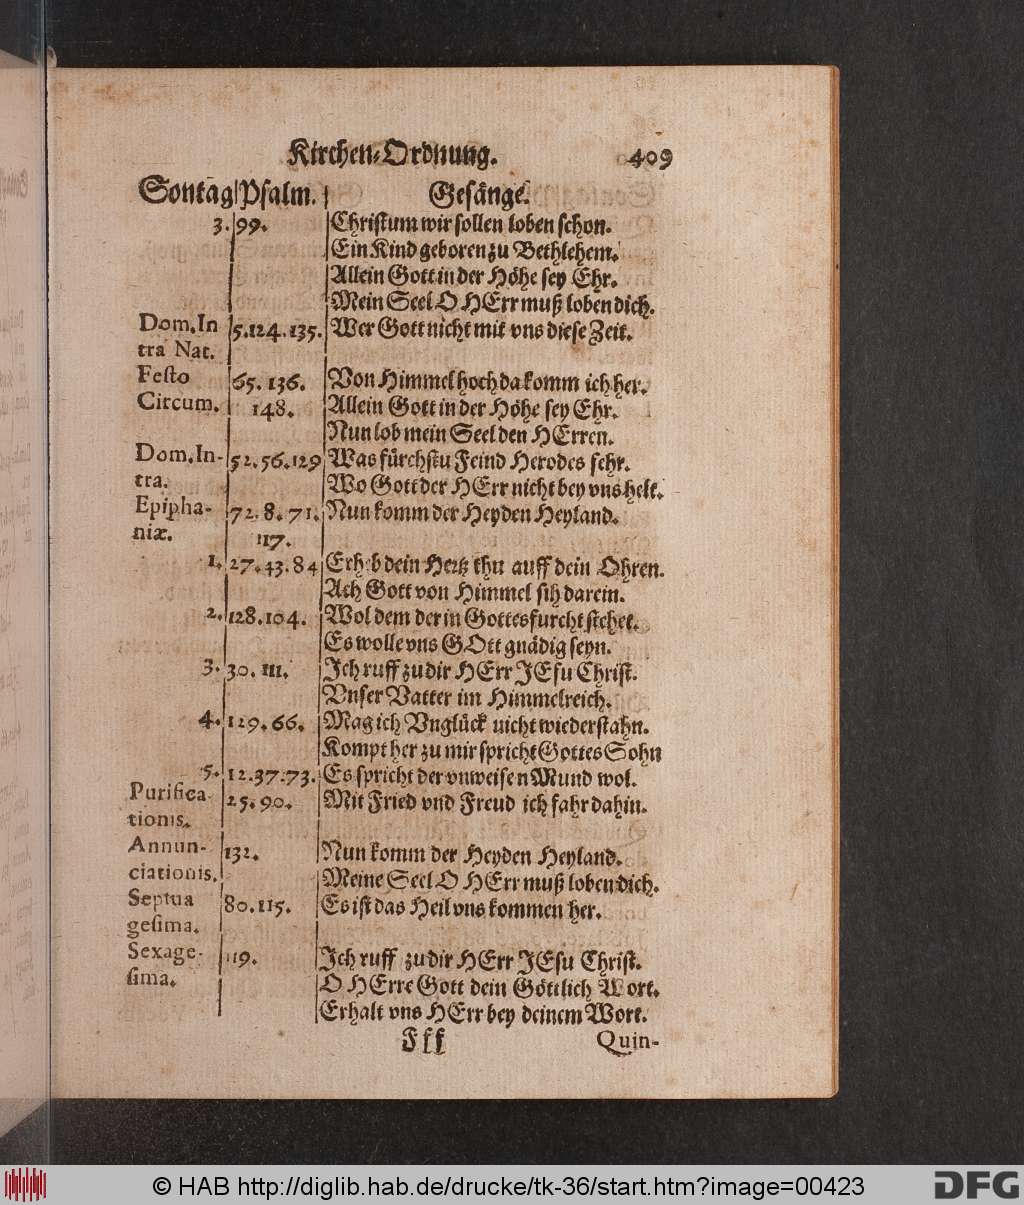 Kirchen-Ordnung. 409
Sontag Psalm. Gesänge.
3. 99. Christum wir sollen loben schon.
Ein Kind geboren zu Bethlehem.
Allein Gott in der Höhe sey Ehr.
Mein Seel O HErr muß loben dich.
Dom. In 5. 124. 135. Wer Gott nicht mit vns diese Zeit.
tra Nat.
Festo 65. 136. Von Himmel hoch da komm ich her.
Circum. 148. Allein Gott in der Höhe sey Ehr.
Nun lob mein Seel den HErren.
Dom. In- 52. 56. 129 Was fürchstu Feind Herodes sehr.
tra. Wo Gott der HErr nicht bey vns helt.
Epipha- 72. 8. 71. Nun komm der Heyden Heyland.
niæ. 117.
1. 27. 43. 84 Erheb dein Hertz thu auff dein Ohren.
Ach Gott von Himmel sih darein.
2. 128. 104. Wol dem der in Gottesfurcht stehet.
Es wolle vns GOtt gnädig seyn.
3. 30. 111. Ich ruff zu dir HErr JEsu Christ.
Vnser Vatter im Himmelreich.
4. 129. 66. Mag ich Vnglück nicht wiederstahn.
Kompt her zu mir spricht Gottes Sohn
5. 12. 37. 73. Es spricht der vnweisen Mund wol.
Purifica- 25. 90. Mit Fried vnd Freud ich fahr dahin.
tionis.
Annun- 132. Nun komm der Heyden Heyland.
ciationis. Meine Seel O HErr muß loben dich.
Septua 80. 115. Es ist das Heil vns kommen her.
gesima.
Sexage- 119. Ich ruff zu dir HErr JEsu Christ.
sima. O HErre Gott dein Göttlich Wort.
Erhalt vns HErr bey deinem Wort.
Fff Quin-
© HAB http://diglib.hab.de/drucke/tk-36/start.htm?image=00423
DFG